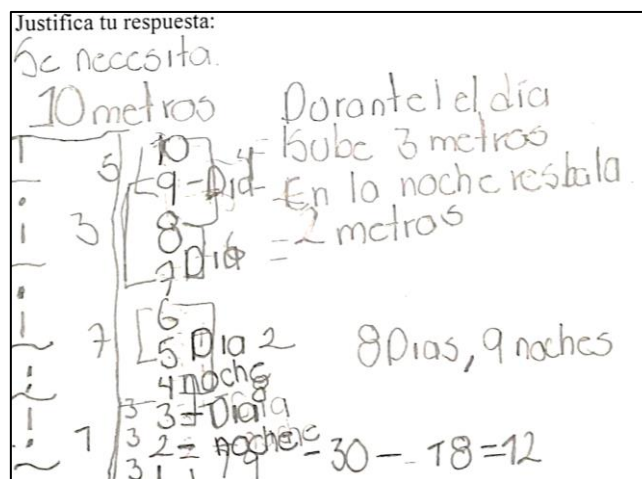 Justifica tu respuesta:
Se necesita.
10 metros
Durante el día
Sube 3 metros
En la noche resbala
2 metros
5 10
9 - Did
3 8
7 Dia
6
7 5 Dia 2
8 Dias, 9 noches
4 noche
3 3 - Dia
1 3 2 = noche = 30 - 18 = 12
3